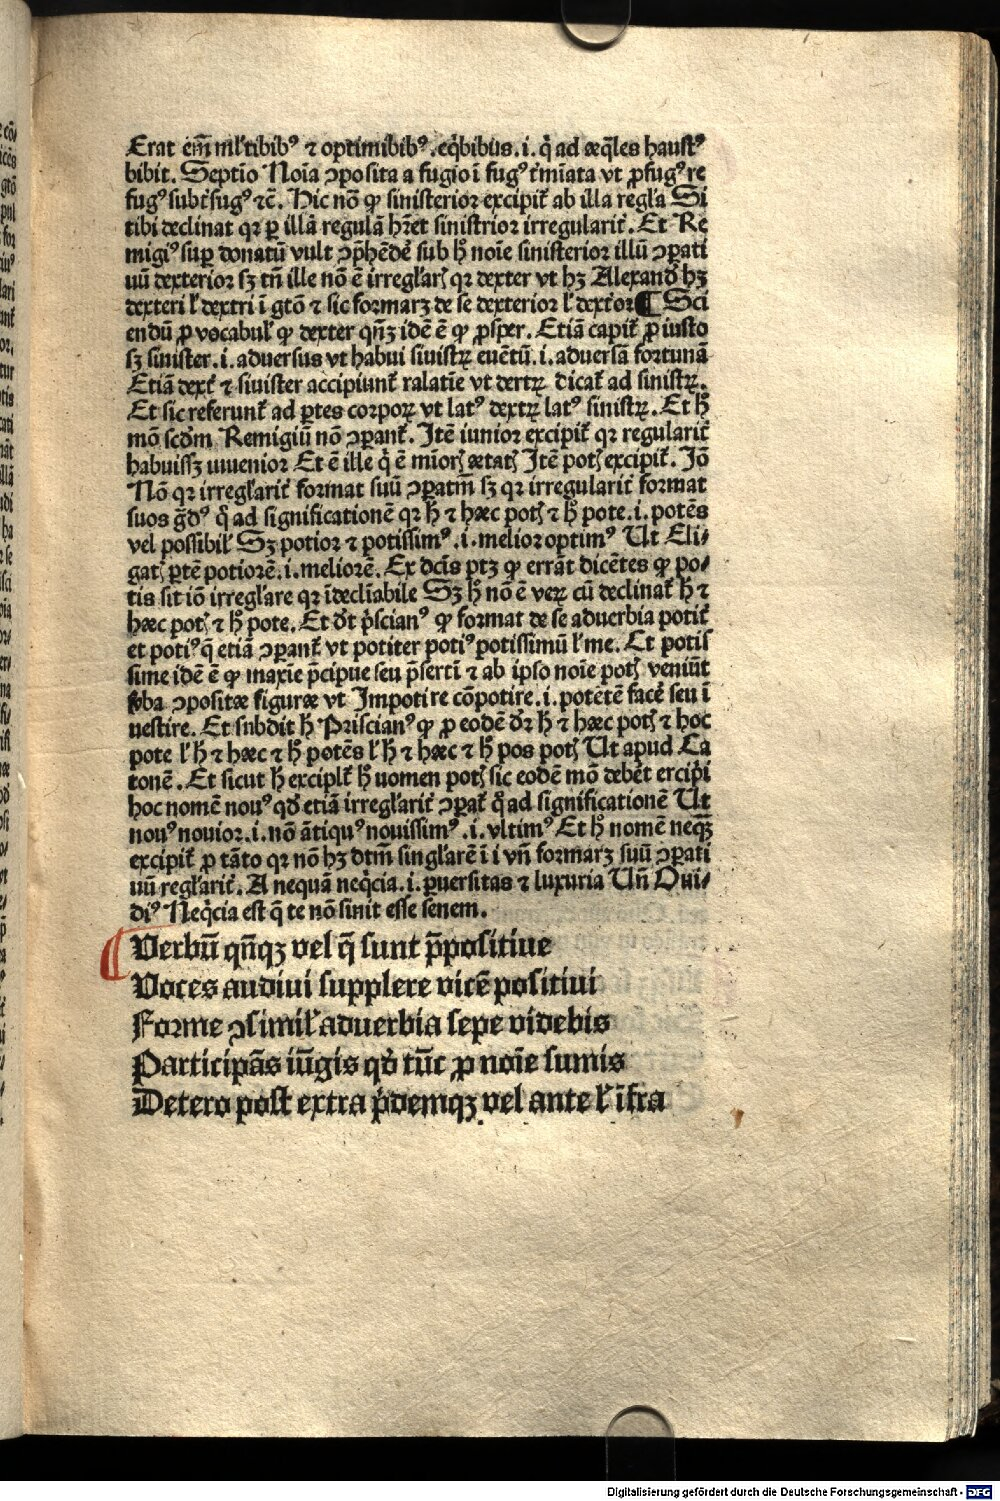 Erat em̄ ml'tibibꝰ ⁊ optimibibꝰ .eq̇bibus .i. q̇ ad æq̄les haustꝰ
bibit. Septīo Noīa ↄposita a fugio ī fugꝰ t'mīata vt ꝓfugꝰ re
fugꝰ subt'fugꝰ ⁊c̄. Hic nō ꝙ sinisterior excipit̄ ab illa regl'a Si
tibi declinat qꝛ ꝑ illā regulā hr̄et sinistrior irregularit̄. Et Re
migiꝰ suꝑ donatū vult ↄp̄hēdē sub ħ noīe sinisterior illū ↄꝑati
uū dexterior sꝫ tn̄ ille nō ē irregl'arꝭ qꝛ dexter vt hꝫ Alexandᵒ hꝫ
dexteri l' dextri ī gtō ⁊ sic formarꝫ de se dexterior l' dext'or ¶ Sci
endū ꝓ vocabul' ꝙ dexter qn̄ꝫ idē ē ꝙ ꝓsper. Etiā capit̄ ꝓ iusto
sꝫ sinister .i. aduersus vt habui siuistꝝ euētū .i. aduersā fortunā
Etiā dext' ⁊ siuister accipiunt̄ ralatīe vt dertꝝ dicat̄ ad sinistꝝ.
Et sic referunt̄ ad ꝑtes corpoꝝ vt latꝰ dextꝝ latꝰ sinistꝝ. Et ħ
mō scd'm Remigiū nō ↄꝑant̄. Itē iunior excipit̄ qꝛ regularit̄
habuissꝫ iuuenior Et ē ille q̇ ē mīorꝭ ætatꝭ Itē potꝭ excipit̄. Iō
Nō qꝛ irregl'arit̄ format suū ↄꝑatm̄ sꝫ qꝛ irregularit̄ format
suos g̃dꝰ q̇ ad significationē qꝛ ħ ⁊ hæc potꝭ ⁊ ħ pote .i. potēs
vel possibil' Sꝫ potior ⁊ potissimꝰ .i. melior optimꝰ Ut Eli⸗
gatꝭ ꝑtē potiorē .i. meliorē. Ex dcīs ptꝫ ꝙ errāt dicētes ꝙ po⸗
tis sit iō irregl'are qꝛ īdeclīabile Sꝫ ħ nō ē veꝝ cū declinat̄ ħ ⁊
hæc potꝭ ⁊ ħ pote. Et dt̄ p̓scianꝰ ꝙ format de se aduerbia potit̄
et potiꝰ q̄ etiā ↄꝑant̄ vt potiter potiꝰ potissimū l' me. Et potis
sime idē ē ꝙ maxīe p̄cipue seu p̄sertī ⁊ ab ipso noīe potꝭ veniūt
ꝟba ↄpositæ figuræ vt Impotire cōpotire .i. potētē facē seu ī
uestire. Et subdit ħ Priscianꝰ ꝙ ꝓ eodē dr̄ ħ ⁊ hæc potꝭ ⁊ hoc
pote l' ħ ⁊ hæc ⁊ ħ potēs l' ħ ⁊ hæc ⁊ ħ pos potꝭ Ut apud Ca
tonē. Et sicut ħ exciplt̄ ħ uomen potꝭ sic eodē mō debēt ercip̓i
hoc nomē nouꝰ qd̓ etiā irregl'arit̄ ↄꝑat̄ q̇ ad significationē Ut
nouꝰ nouior .i. nō ātiquꝰ nouissimꝰ .i. vltimꝰ Et ħ nomē neqꝫ̄
excipit̄ ꝓ tāto qꝛ nō hꝫ dtm̄ singl'arē ī i vn̄ formarꝫ suū ↄꝑati
uū regl'arit̄. A nequā neq̇cia .i. ꝑuersitas ⁊ luxuria Un̄ Oui⸗
diꝰ Neq̇cia est q̄ te nō sinit esse senem.
Verbū qn̄qꝫ vel q̄ sunt p̄positiue
Voces audiui supplere vicē positiui
Forme ↄsimil' aduerbia sepe videbis
Participās iūgis qd̓ tūc ꝓ noīe sumis
Detero post extra p̓demqꝫ vel ante l' īfra
Digitalisierung gefördert durch die Deutsche Forschungsgemeinschaft - DFG